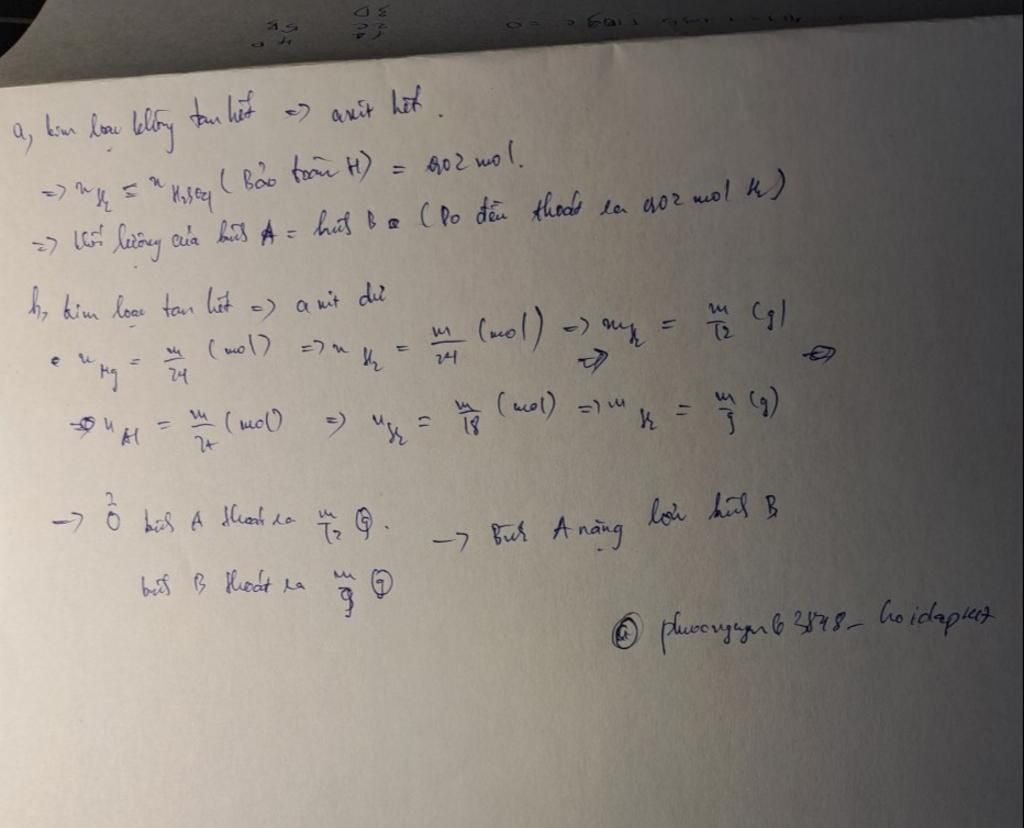 a, kim loại không tan hết => axit hết.
=> n H₂ = n H₂SO₄ (Bảo toàn H) = 0,02 mol.
=> Khối lượng của bình A = bình B (Do đều thoát ra 0,02 mol H₂)
b, kim loại tan hết => axit dư
• n Mg = m/24 (mol) => n H₂ = m/24 (mol) => m H₂ = m/12 (g)
n Al = m/27 (mol) => n H₂ = m/18 (mol) => m H₂ = m/9 (g)
-> Ở bình A thoát ra m/12 g. -> Bình A nặng hơn bình B
bình B thoát ra m/9 g